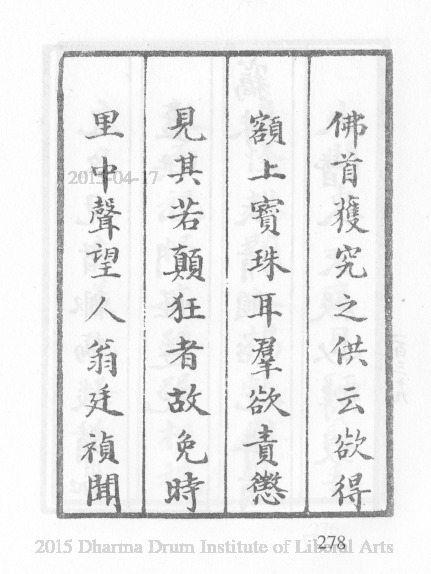 佛首獲究之供云欲得
額上寶珠耳羣欲責懲
見其若顛狂者故免時
里中聲望人翁廷禎聞
2015-04-17
2015 Dharma Drum Institute of Liberal Arts
278